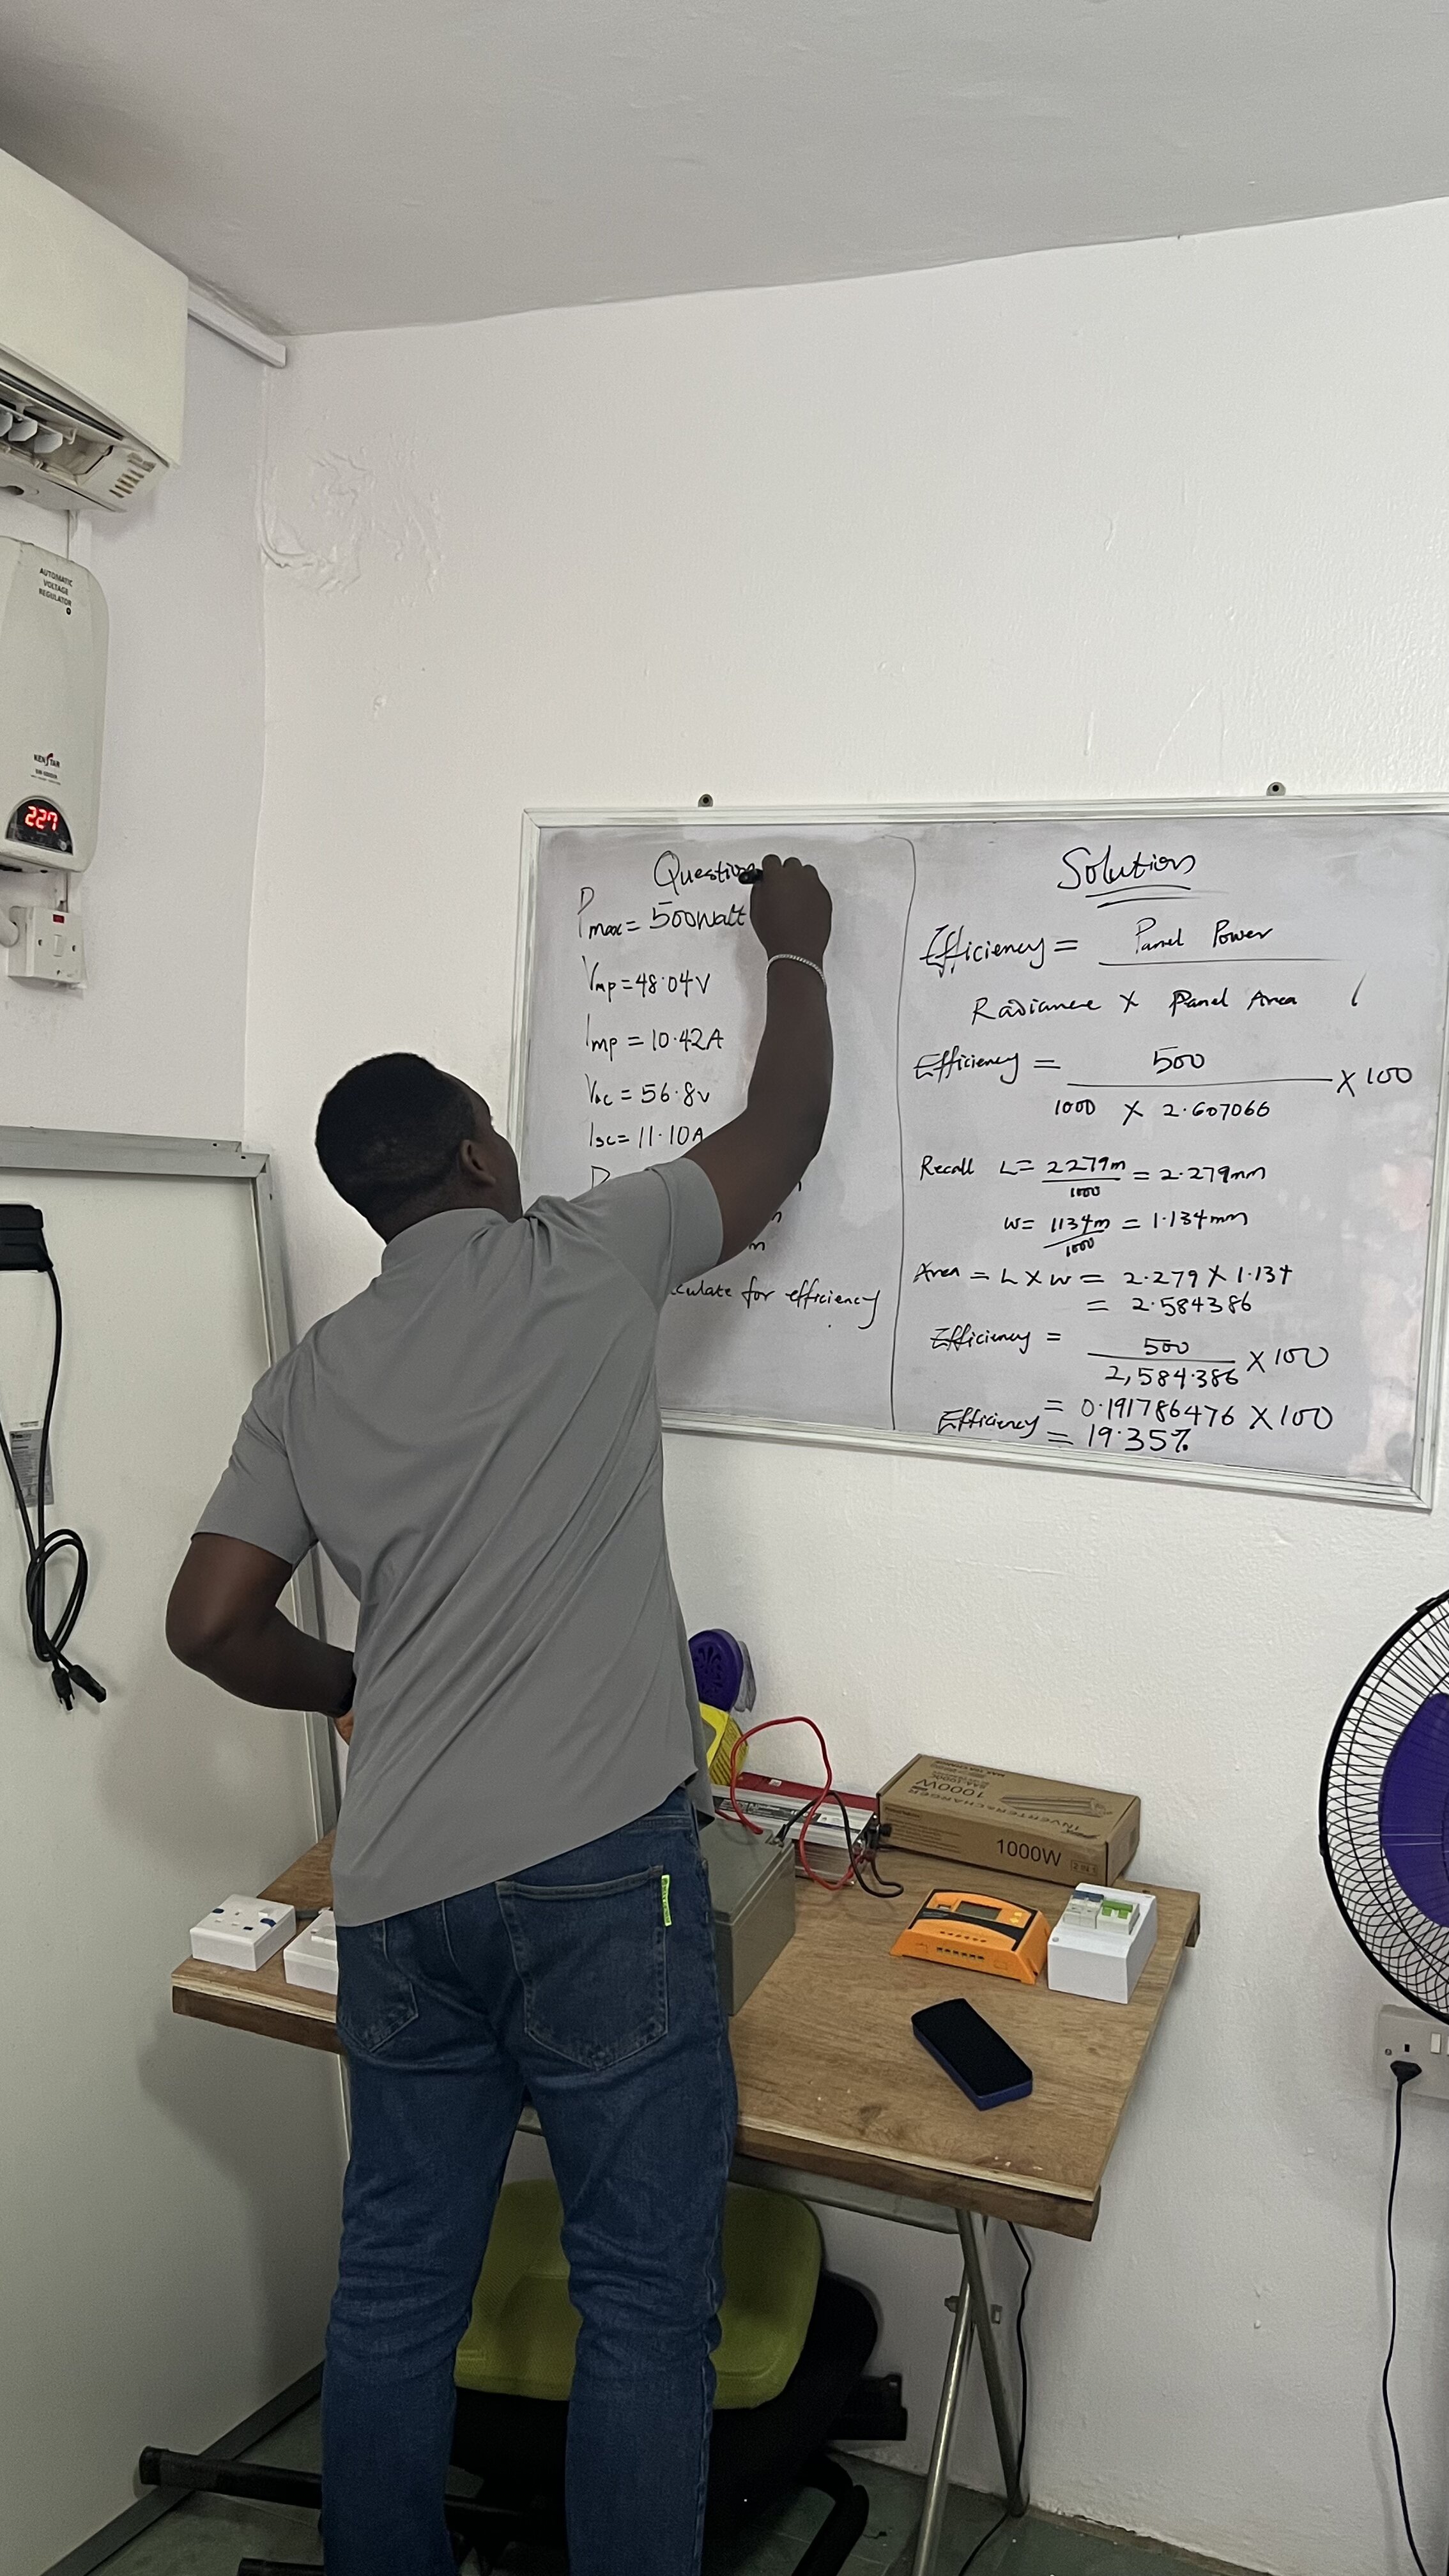 AUTOMATIC
VOLTAGE
REGULATOR
KENSTAR
227
Question
Pmax = 500watt
Vmp = 48.04V
Imp = 10.42A
Voc = 56.8v
Isc = 11.10A
D
m
m
culate for efficiency
Solution
Efficiency = Panel Power
Radiance X Panel Area
Efficiency = 500 X 100
1000 X 2.607066
Recall L = 2279m = 2.279mm
1000
W = 1134m = 1.134mm
1000
Area = L X W = 2.279 X 1.134
= 2.584386
Efficiency = 500 X 100
2,584.386
= 0.191786476 X 100
Efficiency = 19.35%
1000W
INVERTER&CHARGER
1000W